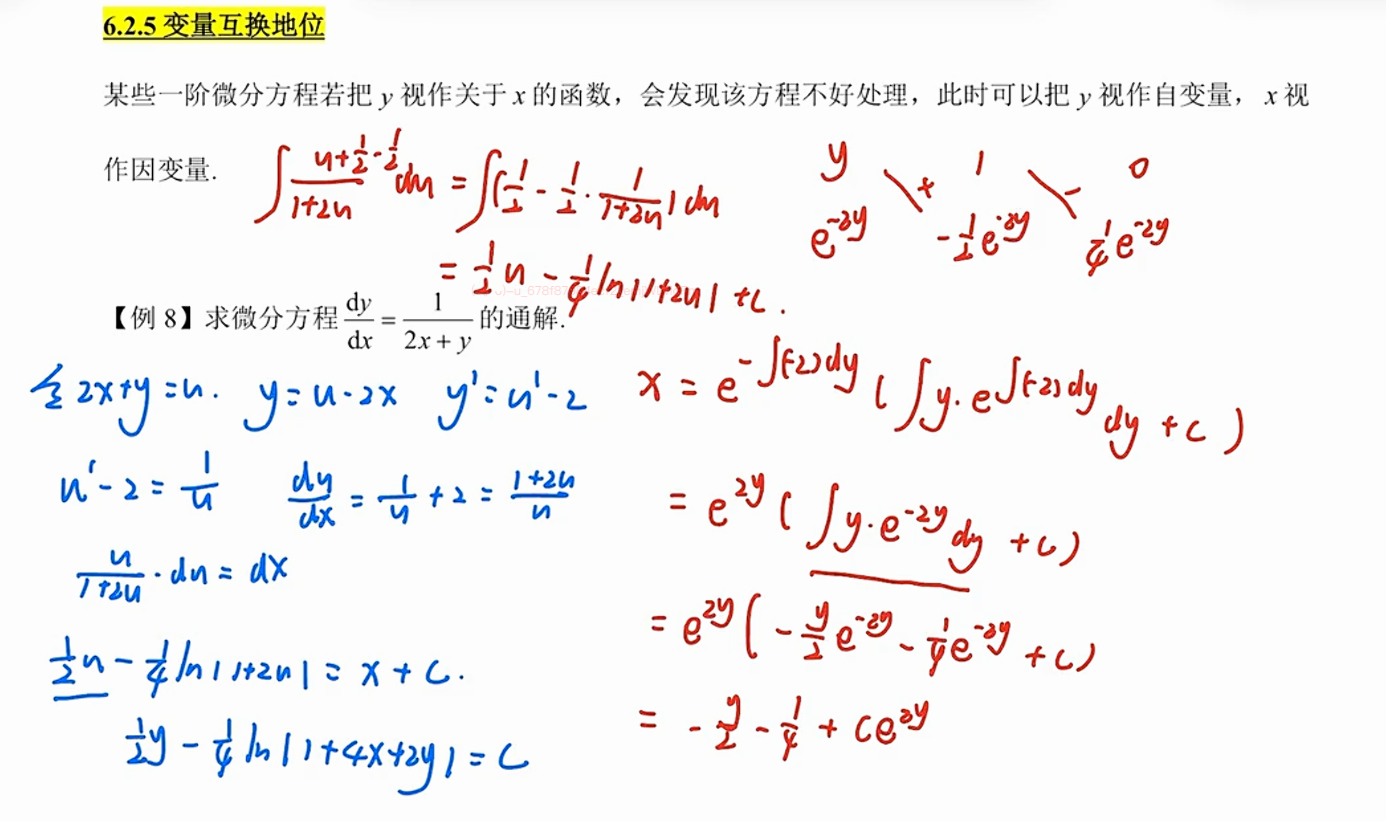 6.2.5 变量互换地位
某些一阶微分方程若把 y 视作关于 x 的函数，会发现该方程不好处理，此时可以把 y 视作自变量，x 视
作因变量.
∫ (u+1/2-1/2)/(1+2u) du = ∫(1/2 - 1/2 · 1/(1+2u)) du
= 1/2 u - 1/4 ln|1+2u| + C.
y + 1 - 0
e^{-2y} -1/2 e^{-2y} 1/4 e^{-2y}
【例 8】求微分方程 dy/dx = 1/(2x+y) 的通解.
令 2x+y=u. y=u-2x y'=u'-2
u'-2 = 1/u du/dx = 1/u + 2 = (1+2u)/u
u/(1+2u) · du = dx
1/2 u - 1/4 ln|1+2u| = x + C.
1/2 y - 1/4 ln|1+4x+2y| = C
x = e^{-∫(-2)dy} (∫y·e^{∫(-2)dy} dy + C)
= e^{2y} (∫y·e^{-2y} dy + C)
= e^{2y} (-y/2 e^{-2y} - 1/4 e^{-2y} + C)
= -y/2 - 1/4 + Ce^{2y}